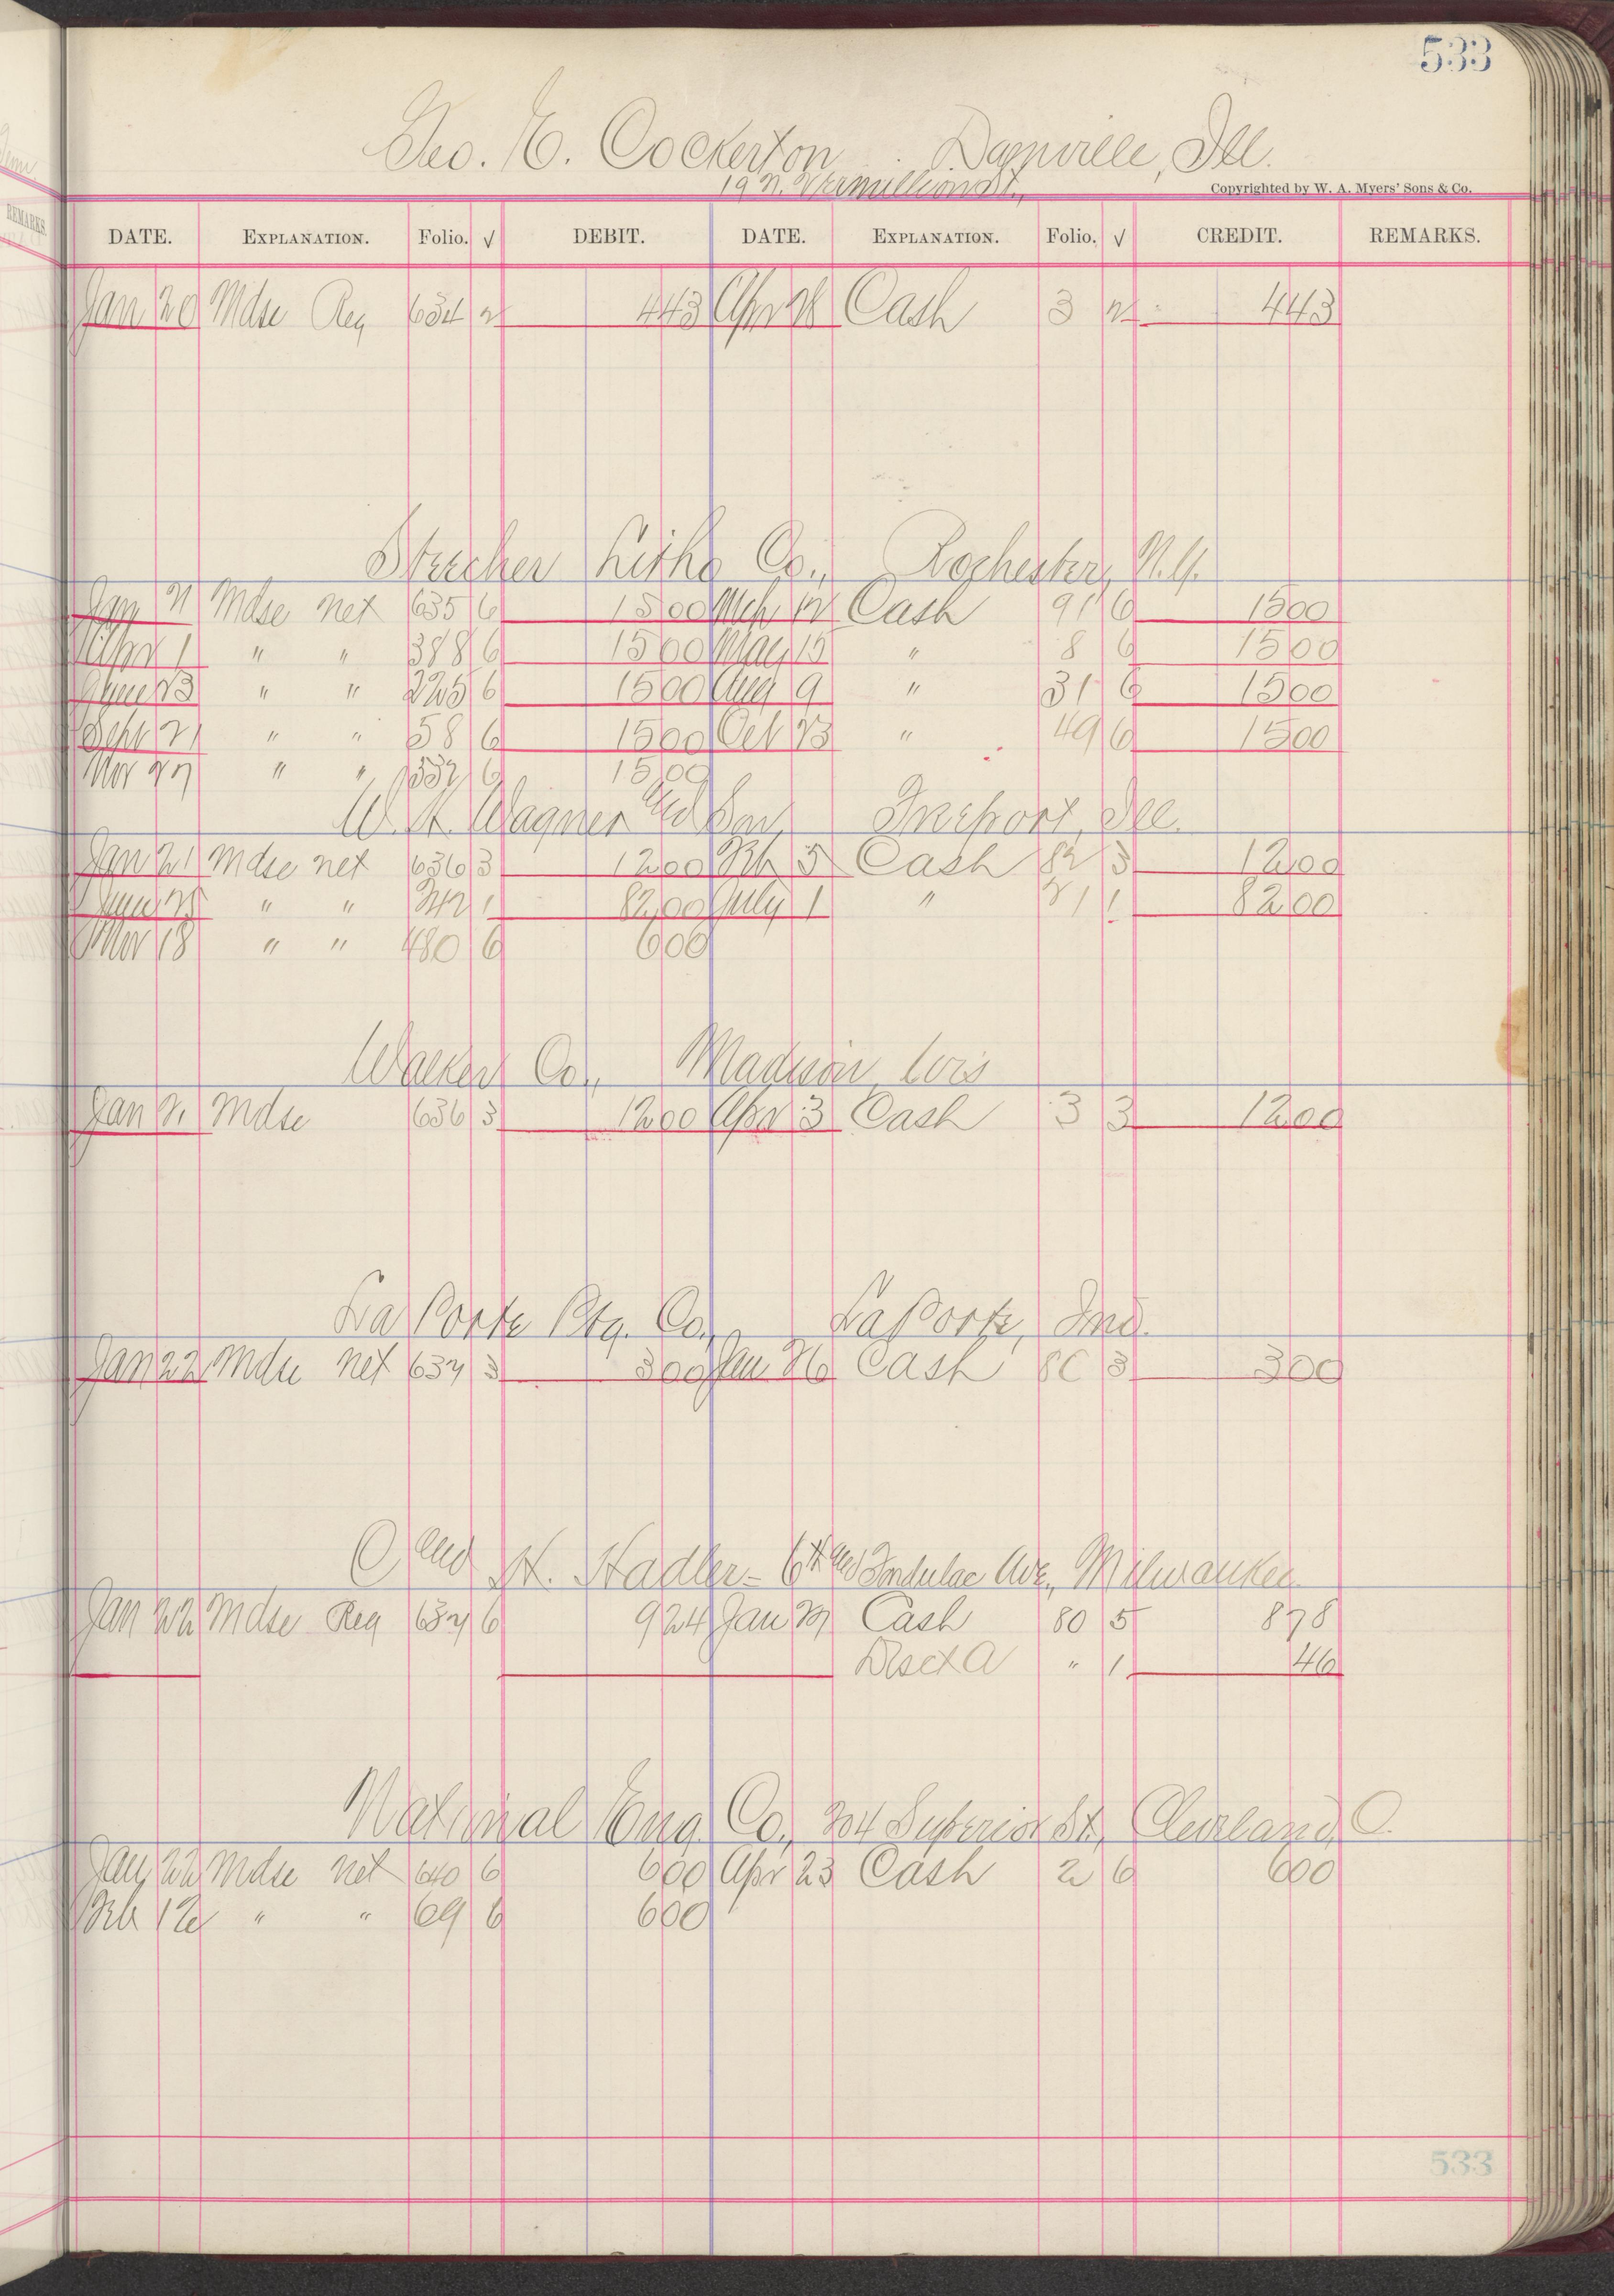 533
Geo. E. Cockerton Danville, Ill.
19 N. Vermillion St.,
Copyrighted by W. A. Myers' Sons & Co.
DATE. EXPLANATION. Folio. √ DEBIT. DATE. EXPLANATION. Folio. √ CREDIT. REMARKS.
Jan 20 Mdse Reg 634 2 443 Apr Cash 3 2 443
Stecher Litho Co., Rochester, N.Y.
Jan 21 Mdse net 635 6 1500 Mch 12 Cash 91 6 1500
Apr 1 " " 388 6 1500 May 15 " 8 6 1500
June 13 " " 225 6 1500 Aug 9 " 31 6 1500
Sept 21 " " 58 6 1500 Oct 23 " 49 6 1500
Nov 27 " " 552 6 1500
W. H. Wagner and Son, Freeport, Ill.
Jan 21 Mdse net 636 3 1200 Feb 5 Cash 82 3 1200
June " " 1 8200 July 1 " 1 8200
Nov 18 " " 480 6 600
Walker Co., Madison Wis
Jan 21 Mdse 636 3 1200 Apr 3 Cash 3 3 1200
La Porte Ptg. Co., La Porte, Ind.
Jan 22 Mdse net 637 3 300 Jan 26 Cash 80 3 300
C and H. Stadler - 6th and Fondulac Ave., Milwaukee
Jan 22 Mdse Reg 637 6 924 Jan 27 Cash 80 5 878
Disct A " 1 46
National Eng. Co., 204 Superior St, Cleveland, O.
Jan 22 Mdse net 640 6 600 Apr 23 Cash 2 6 600
Feb 12 " " 69 6 600
533